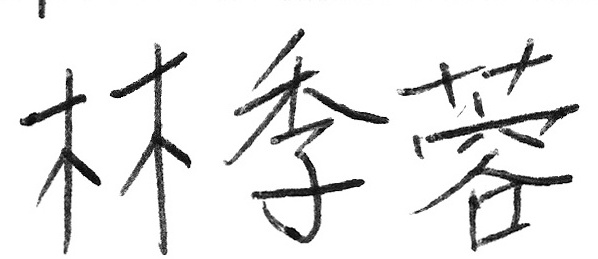 林季蓉